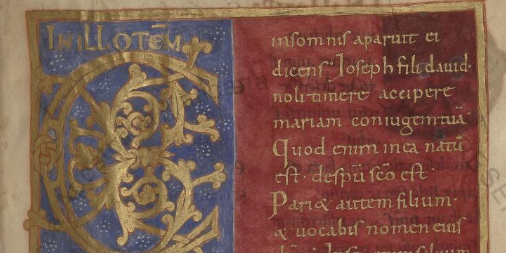 IN ILLO TEM̄
in somnis aparuit ei
dicens · Ioseph fili dauid ·
noli timere accipere
mariam coniugem tuā ·
Quod enim in ea natū
est · de spū sc̄o est ·
Pari& autem filium ·
& uocabis nomen eius